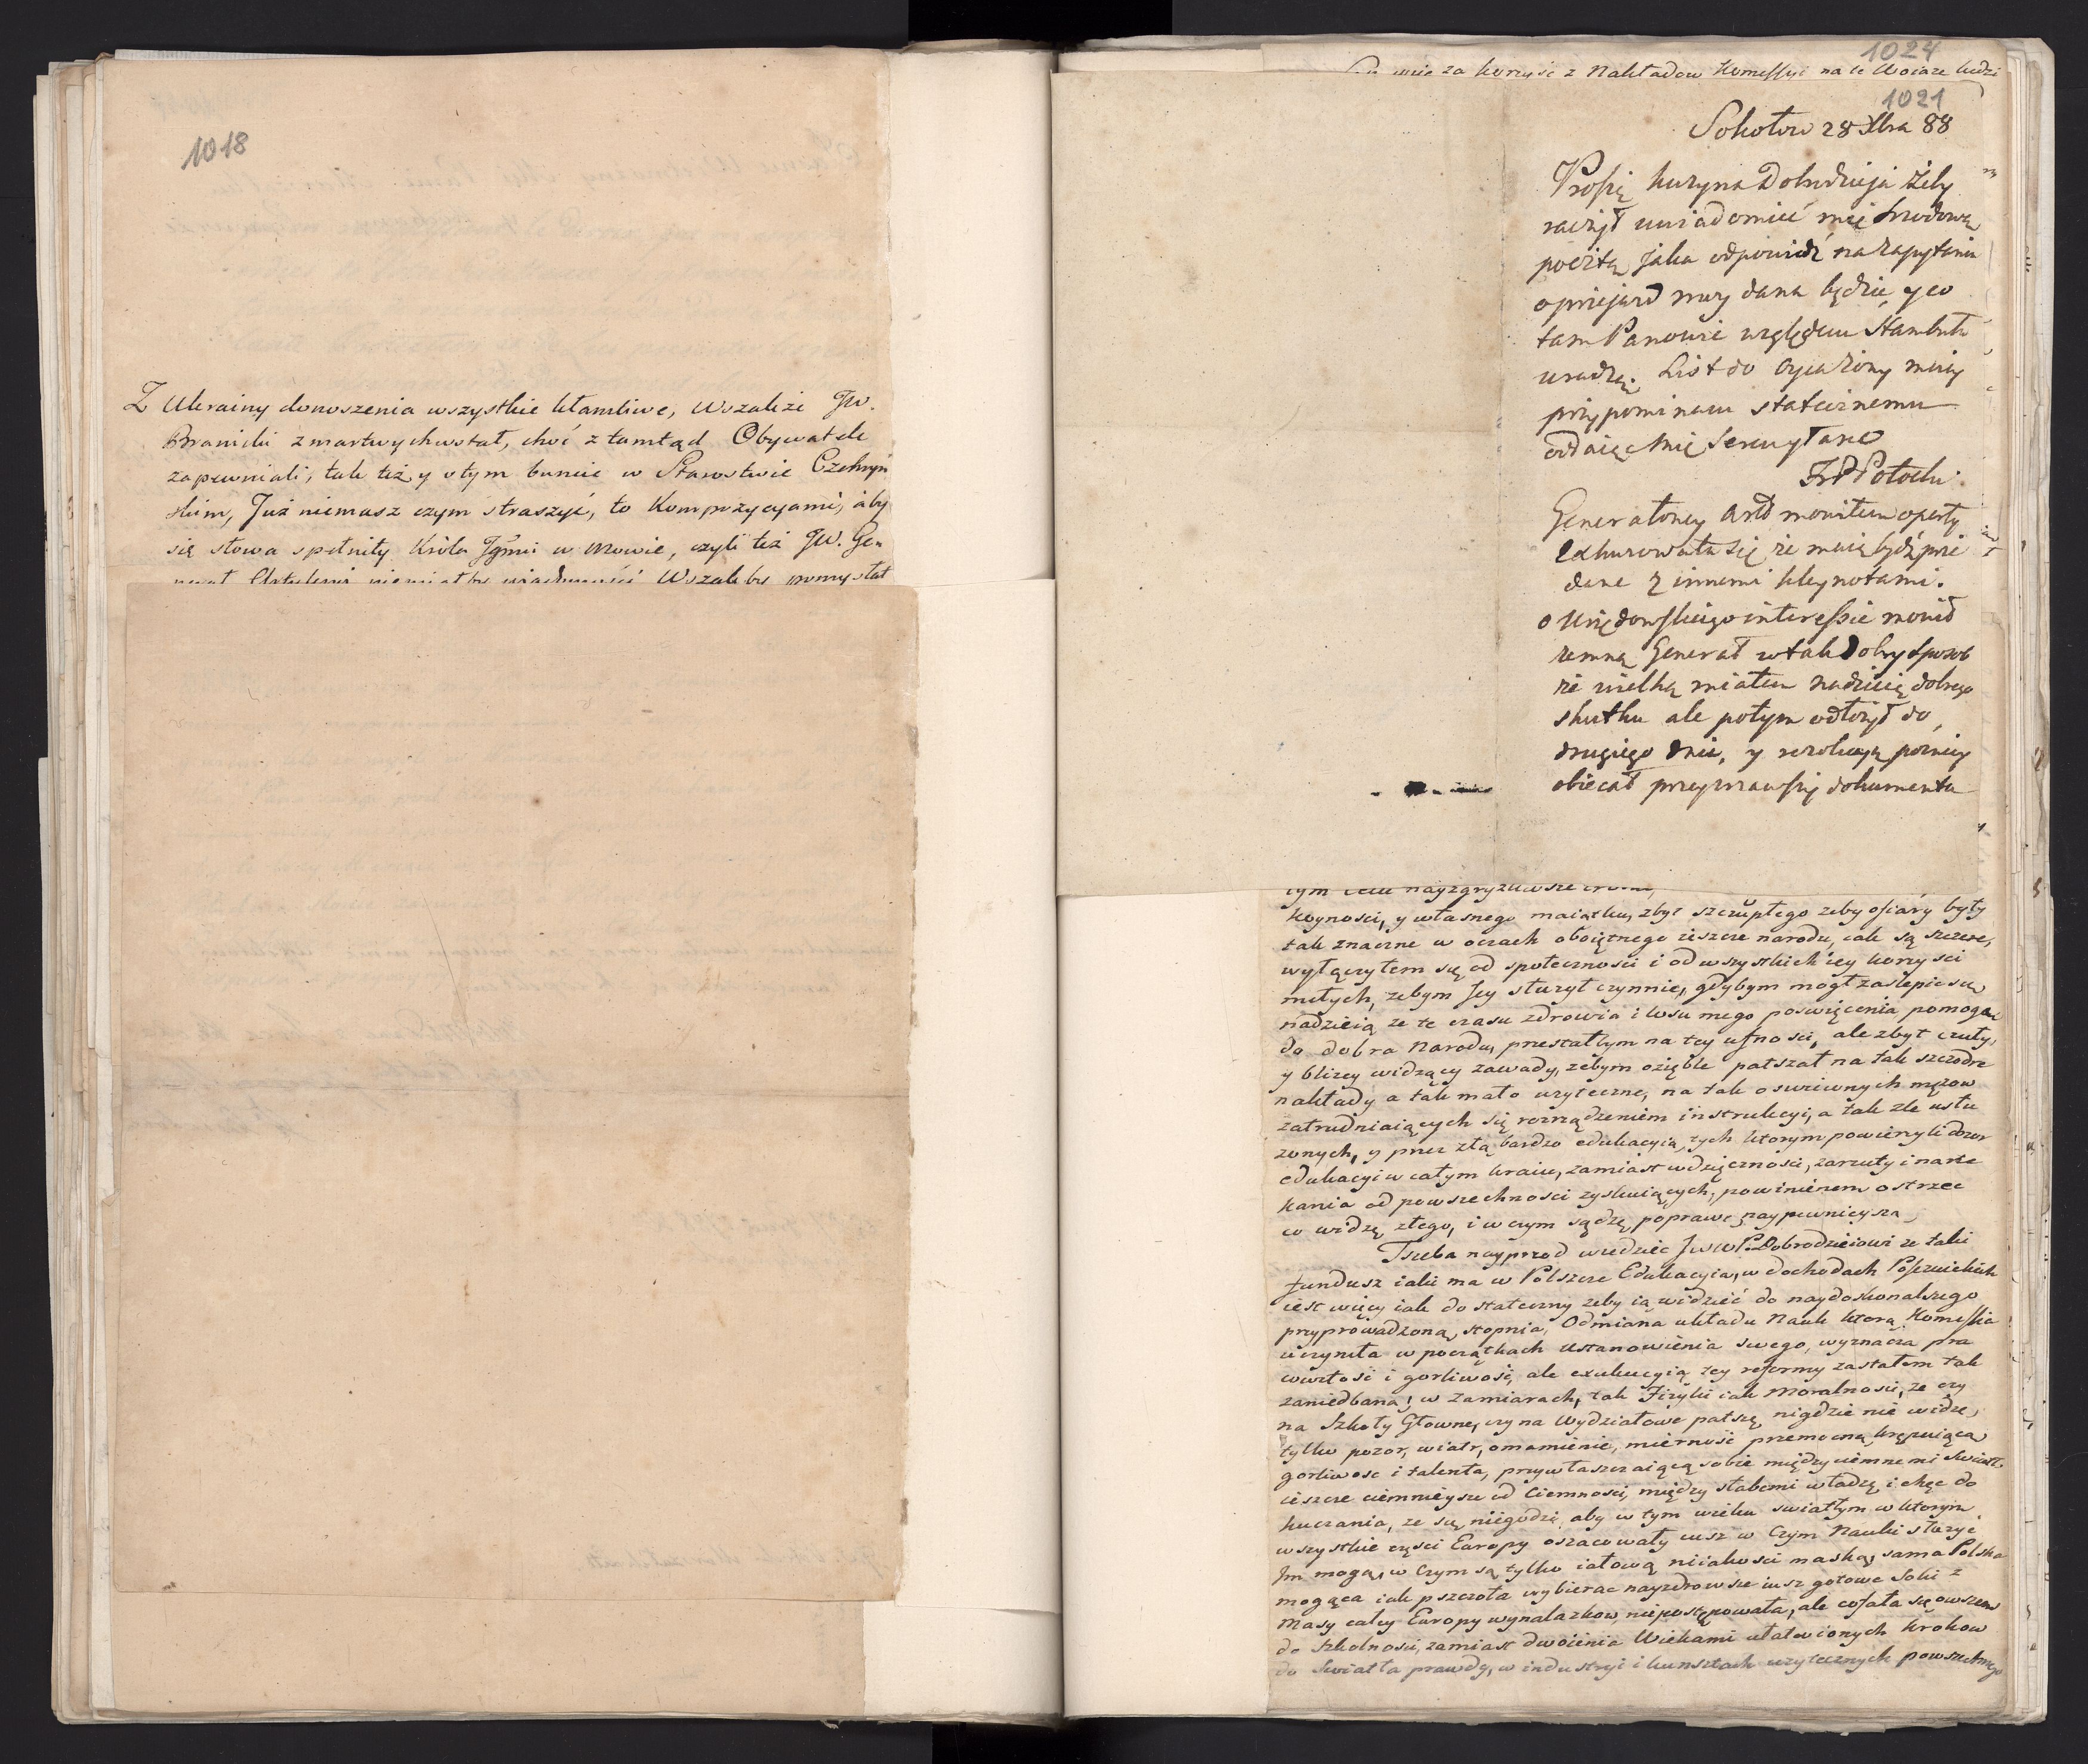 1018
Z Ukrainy donoszenia wszystkie kłamliwe, Wszakże JW.
Branicki zmartwychwstał, choć z tamtąd Obywatele
zapewniali, tak też y o tym buncie w Starostwie Czehryń
skim, Już niemasz czym straszyć, to Kompozycyami, aby
się słowa spełniły Króla Jgmci w mowie, czyli też JW. Ge-
nerał Artyleryi nie miałby wiadomości Wszakby pomyslał
1024
za korzyść z Nakładow Komissyi na te Woiaże ludzi
1021
Sokołow 28 Xbra 88
Proszę kuzyna Dobrodzieja żeby
raczył uwiadomić mię srodową
pocztą jaka odpowiedź na zapytanie
o przejazd mey dana będzie y co
tam Panowie względem Stambułu
uradzą. List do Oyca żony moiey
przypominam statecznemu
oddaię Mię Sercu y łasce
Potocki
Generałowey Artt monitem operty
że maią bydź prze
dane z innemi kleynotami.
o Urzędowskiego interessie mowił
zemną Generał w tak dobry sposob
że wielką miałem nadzieię dobrego
skutku ale potym odłożył do
drugiego dnia, y rezolucyą pozniey
obiecał przeyzrawszy dokumenta
tym celu nayzgryzliwsze
koynosci, y własnego maiątku, zbyt szczupłego zeby ofiary były
tak znaczne w oczach oboiętnego ieszcze narodu, iak są szczere,
wyłączyłem się od społecznosci i od wszystkich iey korzysci
miłych, zebym Jey służył czynnie, gdybym mogł zaslepic się
nadzieią ze te czasu zdrowia i wsu mego poswięcenia pomogą
do dobra Narodu, przestałbym na tey ufnosci, ale zbyt czuły,
y blizey widzący zawady, zebym ozięble patrzał na tak szczodre
nakłady a tak mało uzyteczne, na tak oswieconych mężow
zatrudniaiących się rozrządzeniem instrukcyi, a tak zle usłu
zonych, y przez złą bardzo edukacyią, tych ktorym powierzyli dozor
edukacyi w całym kraiu, zamiast wdzięcznosci, zarzuty i narze
kania od powszechnosci zyskuiących, powinienem ostrzec
co widzę złego, i w czym sądzę poprawę naypewnieyszą
Trzeba nayprzod wiedziec JWWPDobrodzieiowi ze taki
fundusz iaki ma w Polszcze Edukacyia, w dochodach Pojezuickich
iest więcy iak dostateczny zeby ią widzieć do naydoskonalszego
przyprowadzoną stopnia, Odmiana układu Nauk ktorą Komissia
uczyniła w początkach ustanowienia swego, wyznacza pra
wość i gorliwość, ale exekucyią tey reformy zastałem tak
zaniedbaną, w zamiarach, tak Fizyki iak Moralnosci, ze czy
na Szkoły Głowne, czy na Wydziałowe patrzę, nigdzie nie widzę,
tylko pozor, wiatr, omamienie, mierność przemocną, krępuiącą
gorliwosc i talenta, przywłaszczaiącą sobie między ciemnemi Swiatł.
ieszcze ciemnieysze od Ciemnosci, między słabemi władzę, i chęc do
huczania, ze się niegodzi, aby w tym wieku swiatłym w ktorym
wszystkie częsci Europy oszacowały iusz w Czym Nauki służyc
Im mogą, w Czym są tylko iałową niiakosci maską, sama Polska
mogąca iak pszczoła wybierac nayzdrowsze iusz gotowe Soki z
Masy całey Europy wynalazkow, niepostępowała, ale cofała się owszem
do Szkolnosci, zamiast dwoienia Wiekami ułatwionych krokow
do Swiatła prawdy, w industryi i kunsztach uzytecznych powszechnego